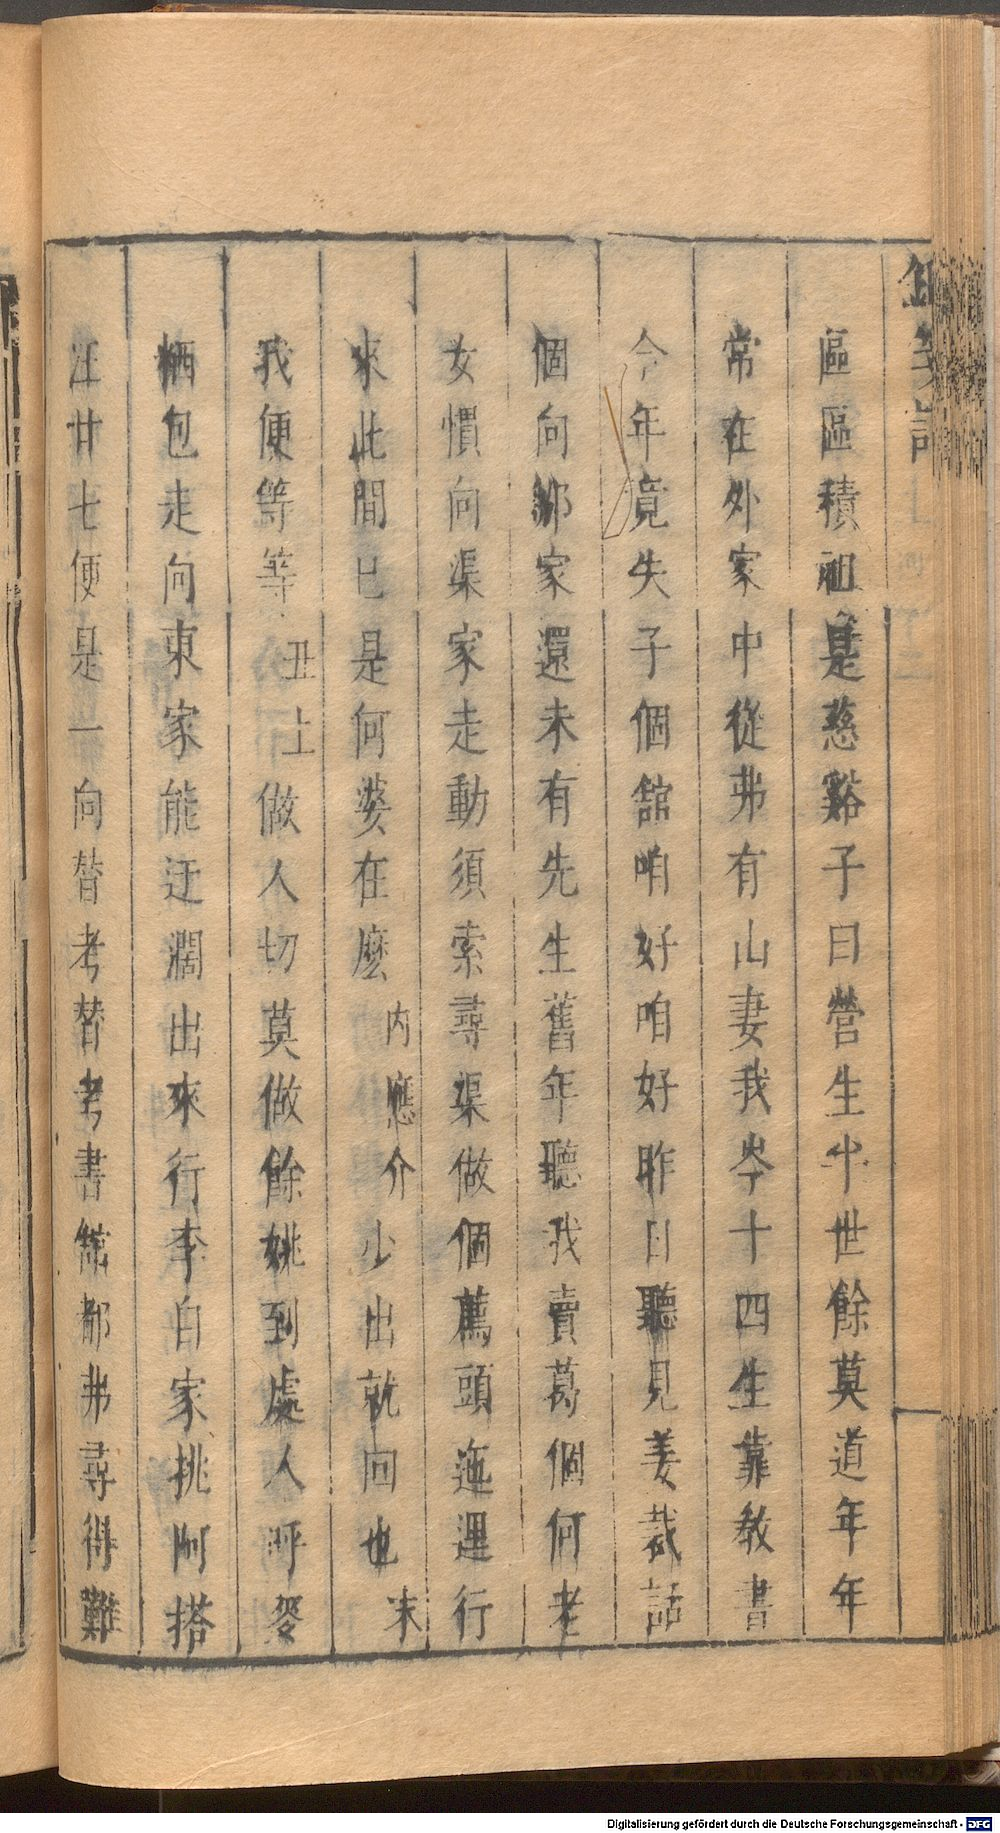 區區積祖是慈谿子曰營生半世餘莫道年年
常在外家中從弗有山妻我岑十四生靠教書
今年竟失子個舘咱好咱好昨日聽見姜裁話
個向鄉家還未有先生舊年聽我賣葛個何老
女慣向渠家走動須索尋渠做個薦頭迤逞行
來此間已是何婆在麽內應介少出就回也末
我便等等丑上做人切莫做餘姚到處人呼
栖包走向東家能迂濶出來行李自家挑阿搭
汪廿七便是一向替考替考書館都弗尋得難
Digitalisierung gefördert durch die Deutsche Forschungsgemeinschaft - DFG